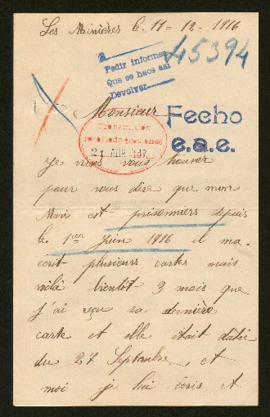 Les Minières le 11-12-1916
45394
Pedir informes
Que se hace así
Devolver
Monsieur
Fecho
e.a.e.
Je viens vous trouver
pour vous dire que mon
Mari est prisonniers depuis
le 1er Juin 1916 il ma
ecrit plusieurs cartes mais
voilà bientot 3 mois que
j'ai reçu sa dernière
carte et elle était datée
du 27 Septembre, et
moi je lui écris et